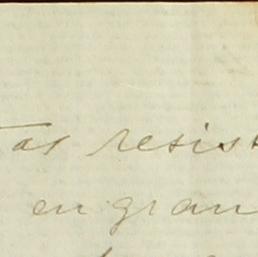 tas resist
en gran